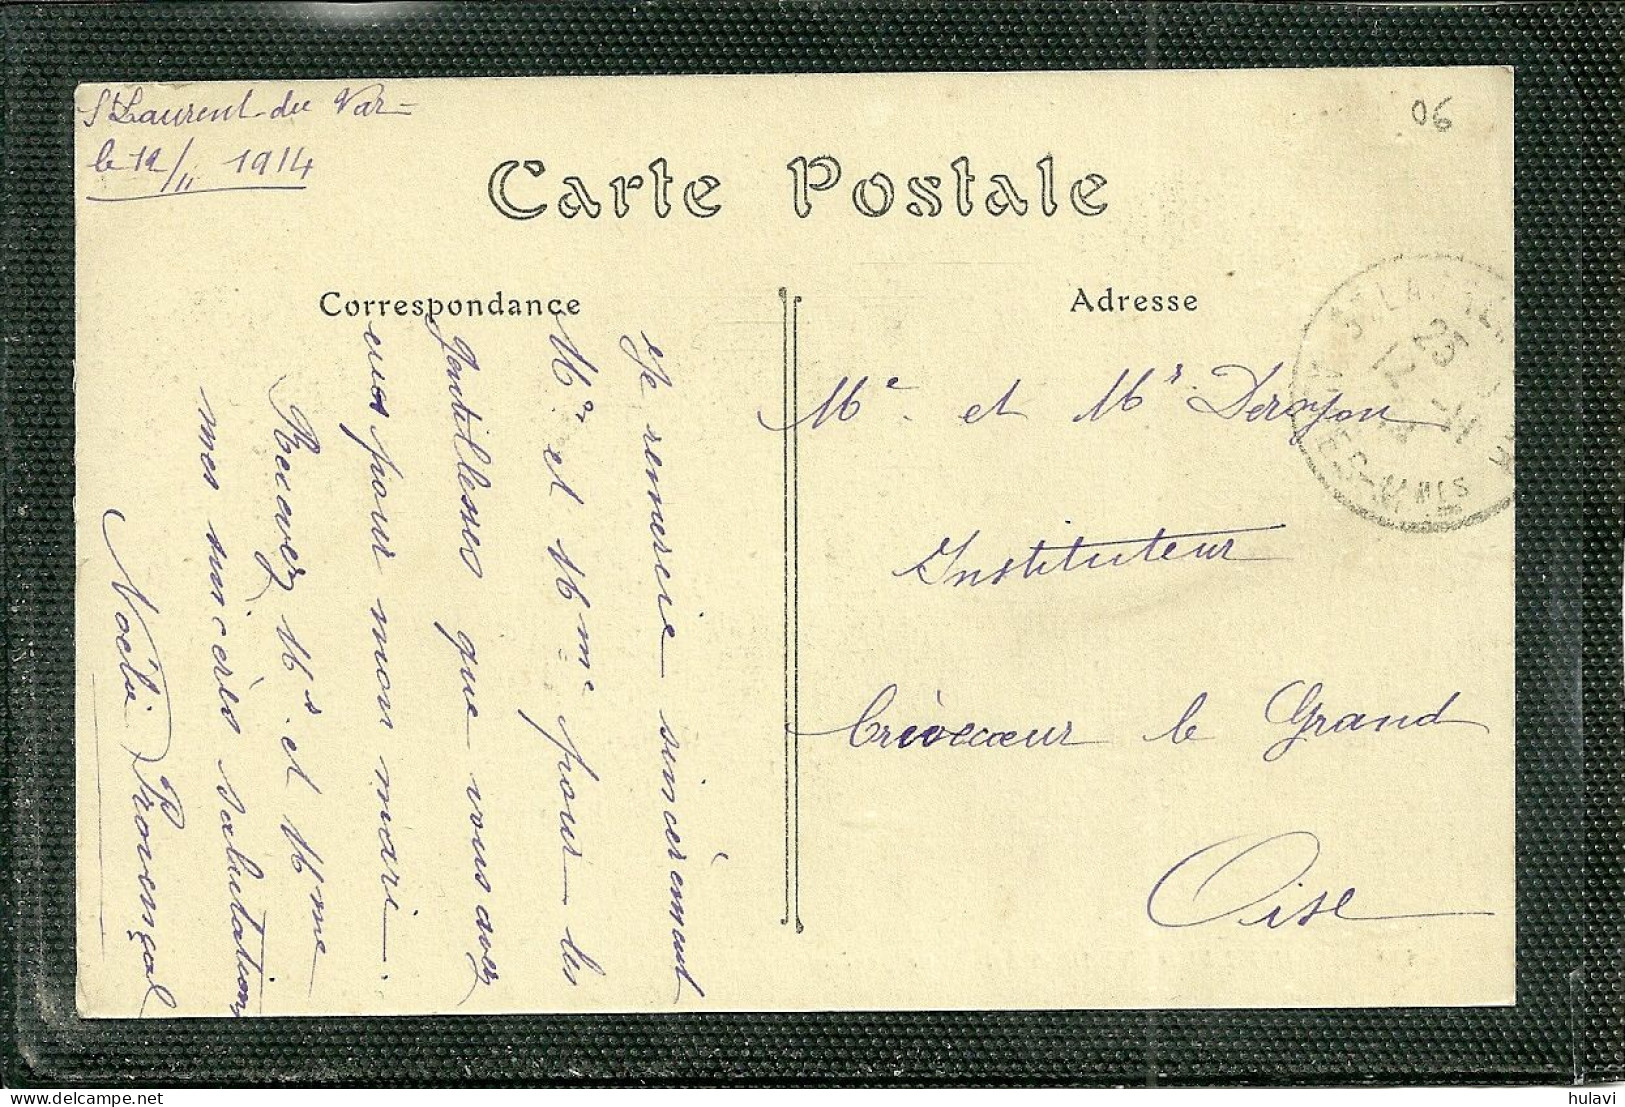 St Laurent du Var
le 12/11 1914
06
Carte Postale
Correspondance
Adresse
Je remercie sincèrement
Mr et Mme pour les
gentillesses que vous avez
eues pour mon mari.
Recevez Mr. et Mme
mes sincères salutations
Noélie Provençal
Me. et Mr Derayon
Instituteur
Crèvecœur le Grand
Oise
12 -11
hulavi